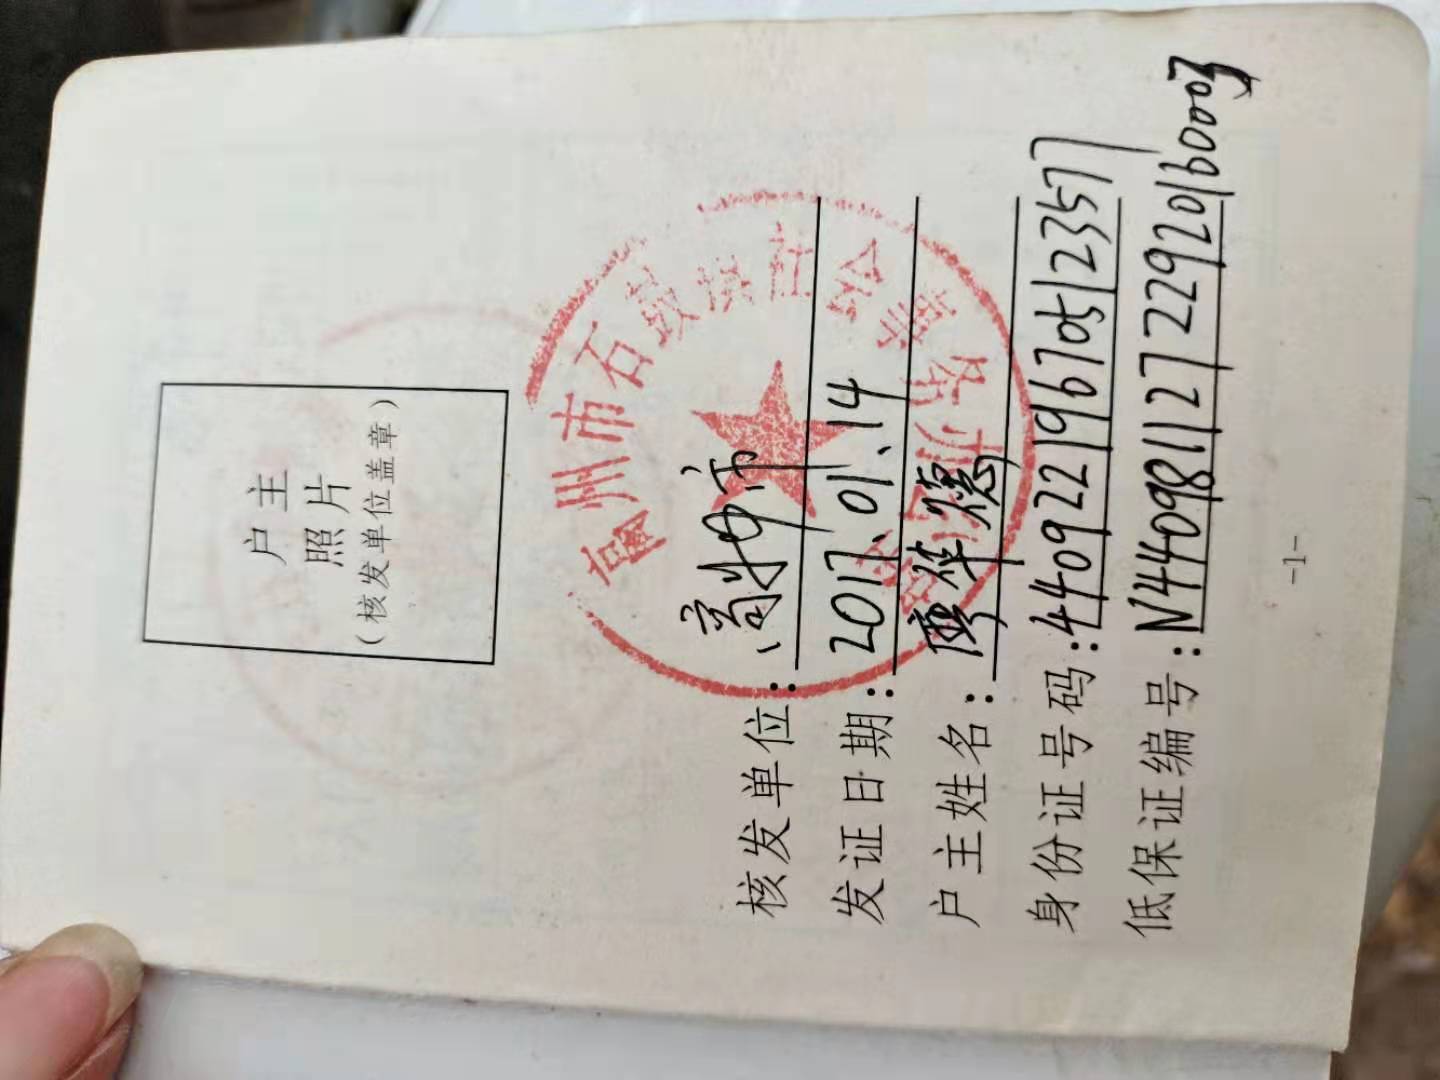 户主
照片
(核发单位盖章)
高州市石鼓镇社会事务办公室
核发单位:高州市
发证日期:2017.01.14
户主姓名:廖华德
身份证号码:440922196705123577
低保证编号:N44098112722920160003
-1-